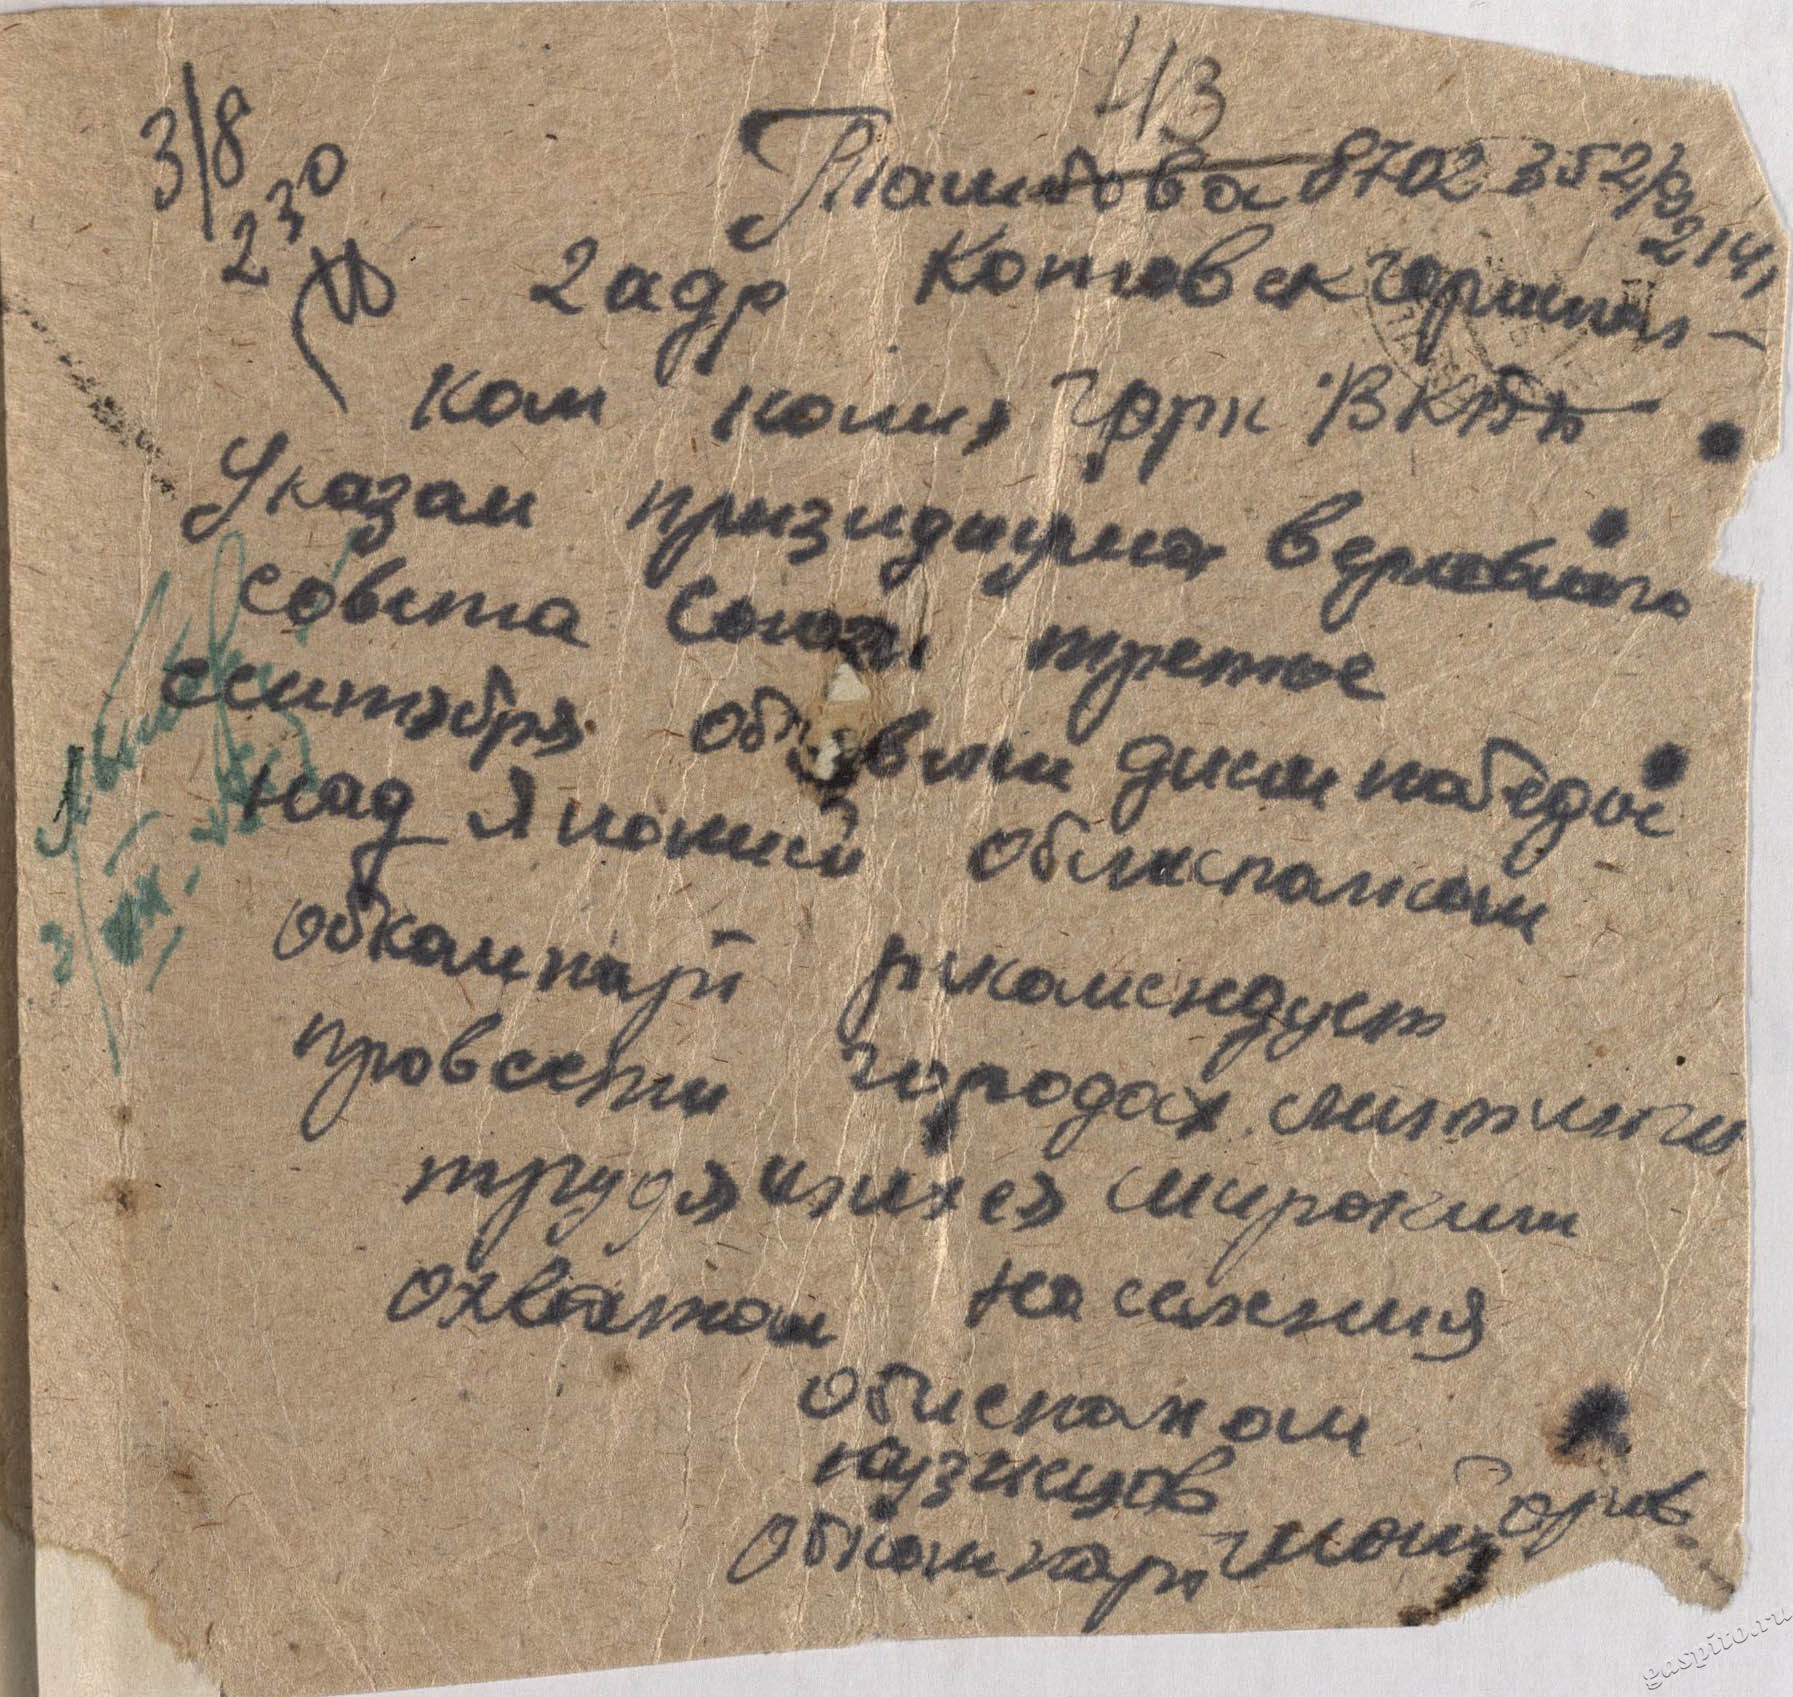 43
3/8
2 30
Тамбова 8702 352/э
214,
2 адр Котовск гориспол-
ком копия грк ВКПб
Указом призидиума верховного
совета Союза третье
сентября объявлен днем победы
над Японией облисполком
обкомпарт рекомендует
провести городах митинги
трудящихся широким
охватом населения
обисполком
кузнецов
обкомпарт
gaspito.ru